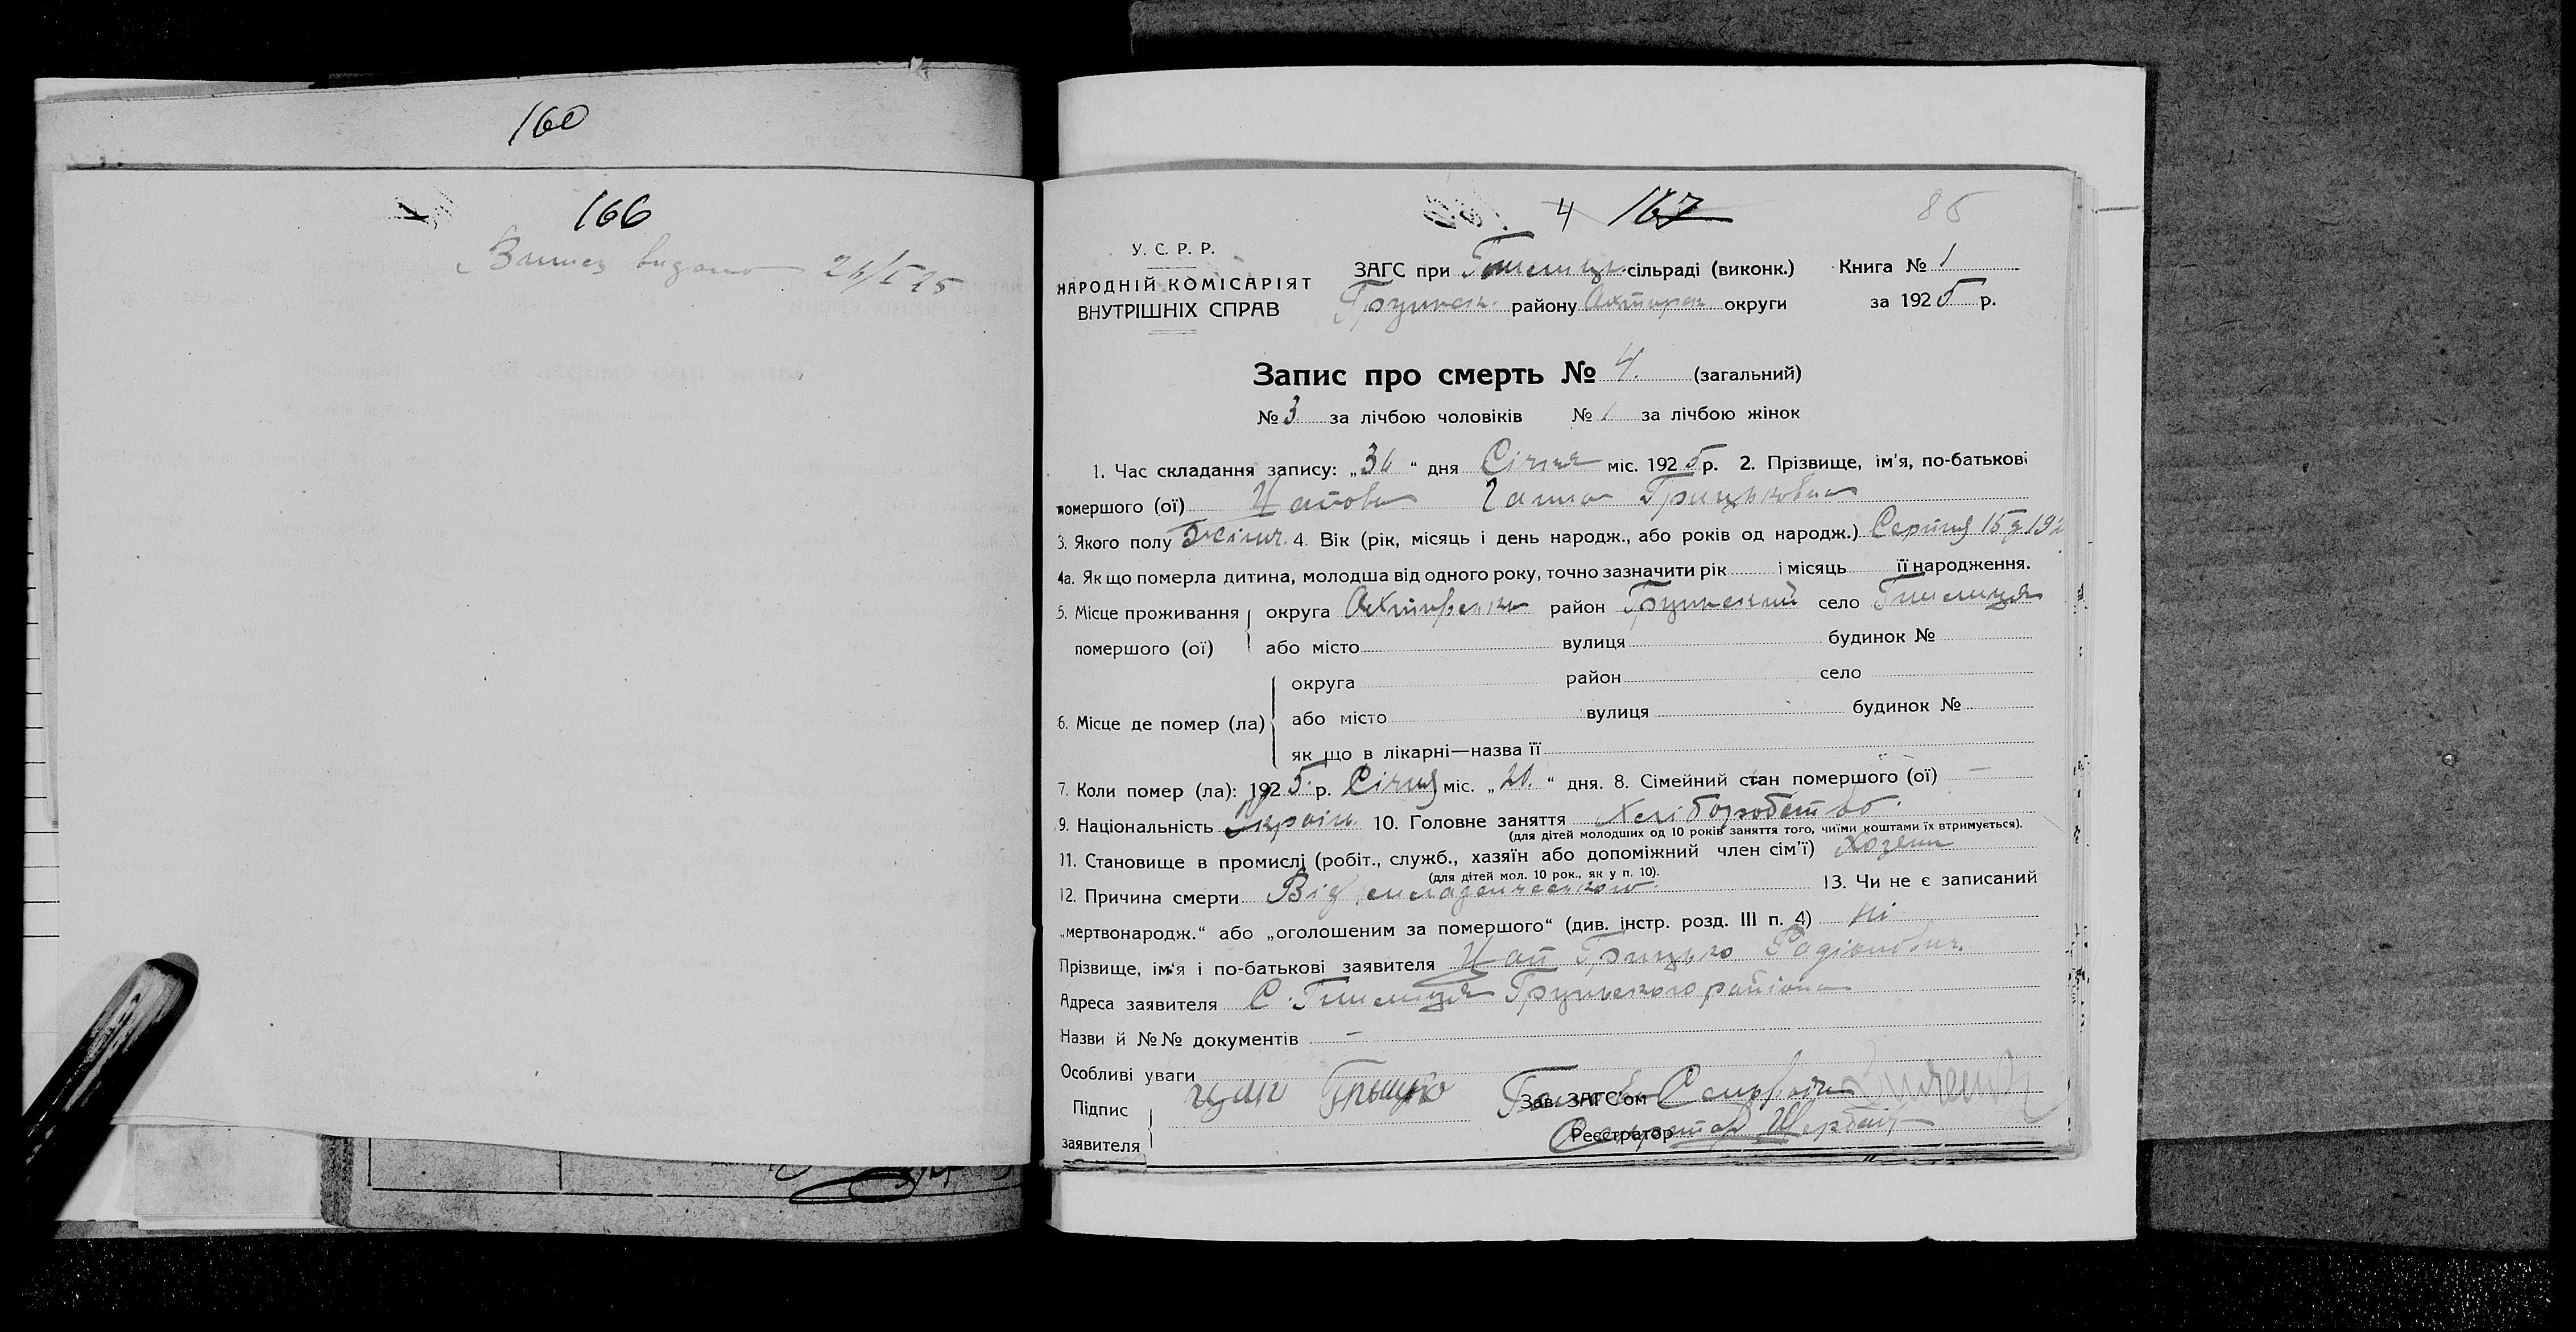 160
166
Випись видано 24/I 25
4 167
85
У. С. Р. Р.
НАРОДНІЙ КОМІСАРІЯТ
ВНУТРІШНІХ СПРАВ
ЗАГС при сільраді (виконк.) Книга № 1
Грунськ. району Охтирськ округи за 1925 р.
Запис про смерть № 4. (загальний)
№ 3 за лічбою чоловіків № 1 за лічбою жінок
1. Час складання запису: „30 “ дня Січня міс. 1925 р. 2. Прізвище, ім'я, по-батькові
помершого (ої) Цапова Ганна Грицьковна
3. Якого полу Жіноч. 4. Вік (рік, місяць і день народж., або років од народж.) Серпня 15 д 192
4а. Як що померла дитина, молодша від одного року, точно зазначити рік і місяць її народження.
5. Місце проживання округа Охтирська район Грунський село
помершого (ої) або місто вулиця будинок №
округа район село
6. Місце де помер (ла) або місто вулиця будинок №
як що в лікарні—назва її
7. Коли помер (ла): 1925 р. Січня міс. „20. “ дня. 8. Сімейний стан помершого (ої) —
9. Національність Україн. 10. Головне заняття Хліборобство.
(для дітей молодших од 10 років заняття того, чиїми коштами їх втримується).
11. Становище в промислі (робіт., служб., хазяїн або допоміжний член сім'ї) Хозяин
(для дітей мол. 10 рок., як у п. 10).
12. Причина смерти Від младенческого. 13. Чи не є записаний
„мертвонародж.“ або „оголошеним за помершого“ (див. інстр. розд. III п. 4) Ні
Прізвище, ім'я і по-батькові заявителя Цап Грицько Радіонович.
Адреса заявителя С. Грунського района
Назви й №№ документів —
Особливі уваги
Підпис заявителя Цап Грыцко
Зав. ЗАГС'ом Голова Сельради
Реєстратор Секретар Щербак